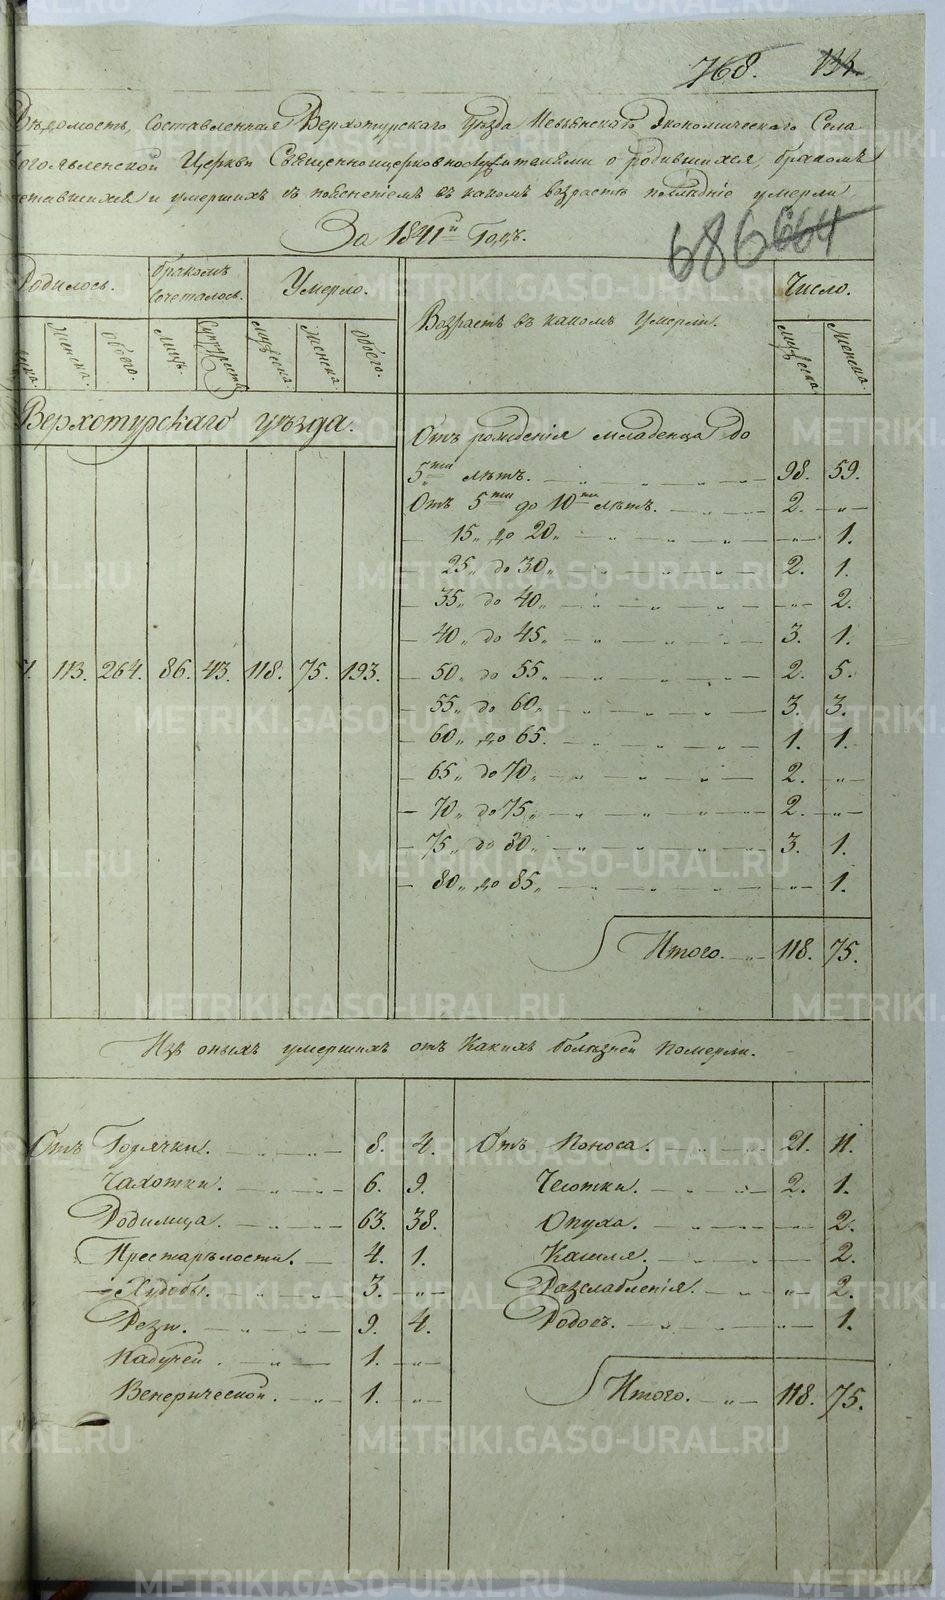 768. 133.
Вѣдомость, Составленная Верхотурскаго Уѣзда Невьянскаго Экономическаго Села
Богоявленской Церкви Священноцерковнослужителями о родившихся, бракомъ
сочетавшихся и умершихъ съ поясненіемъ въ какомъ возрастѣ послѣдніе умерли
За 1841й Годъ.
686 664
Родилось. бракомъ Сочеталось. Умерло. Возрастъ въ какомъ Умерли. Число.
Женска. Обоего. Лицъ. Супружествъ Мужеска. Женска. Обоего. Мужеска. Женска.
Верхотурскаго уѣзда.
113. 264. 86. 43. 118. 75. 193.
Отъ рожденія младенца до
5ти лѣтъ. 98. 59.
Отъ 5ти до 10ти лѣтъ. 2. „
— 15„ до 20„ „ 1.
25„ до 30„ 2. 1.
— 35„ до 40„ „ 2.
— 40„ до 45„ 3. 1.
— 50„ до 55„ 2. 5.
— 55„ до 60„ 3. 3.
— 60„ до 65. 1. 1.
— 65„ до 70„ 2. „
— 70„ до 75„ 2. „
— 75„ до 80„ 3. 1.
— 80„ до 85„ „ 1.
Итого. 118. 75.
Изъ оныхъ умершихъ отъ Какихъ болѣзней Померли.
Отъ Горячки. 8. 4.
Чахотки. 6. 9.
Родимца. 63. 38.
Престарѣлости. 4. 1.
Худобы. 3. „
Рези. 9. 4.
Падучей. 1. „
Венерической. 1. „
Отъ Поноса. 21. 11.
Чесотки. 2. 1.
Опуха. 2.
Кашля. 2.
Разслабленія. „ 2.
Родовъ. „ 1.
Итого. 118. 75.
METRIKI.GASO-URAL.RU